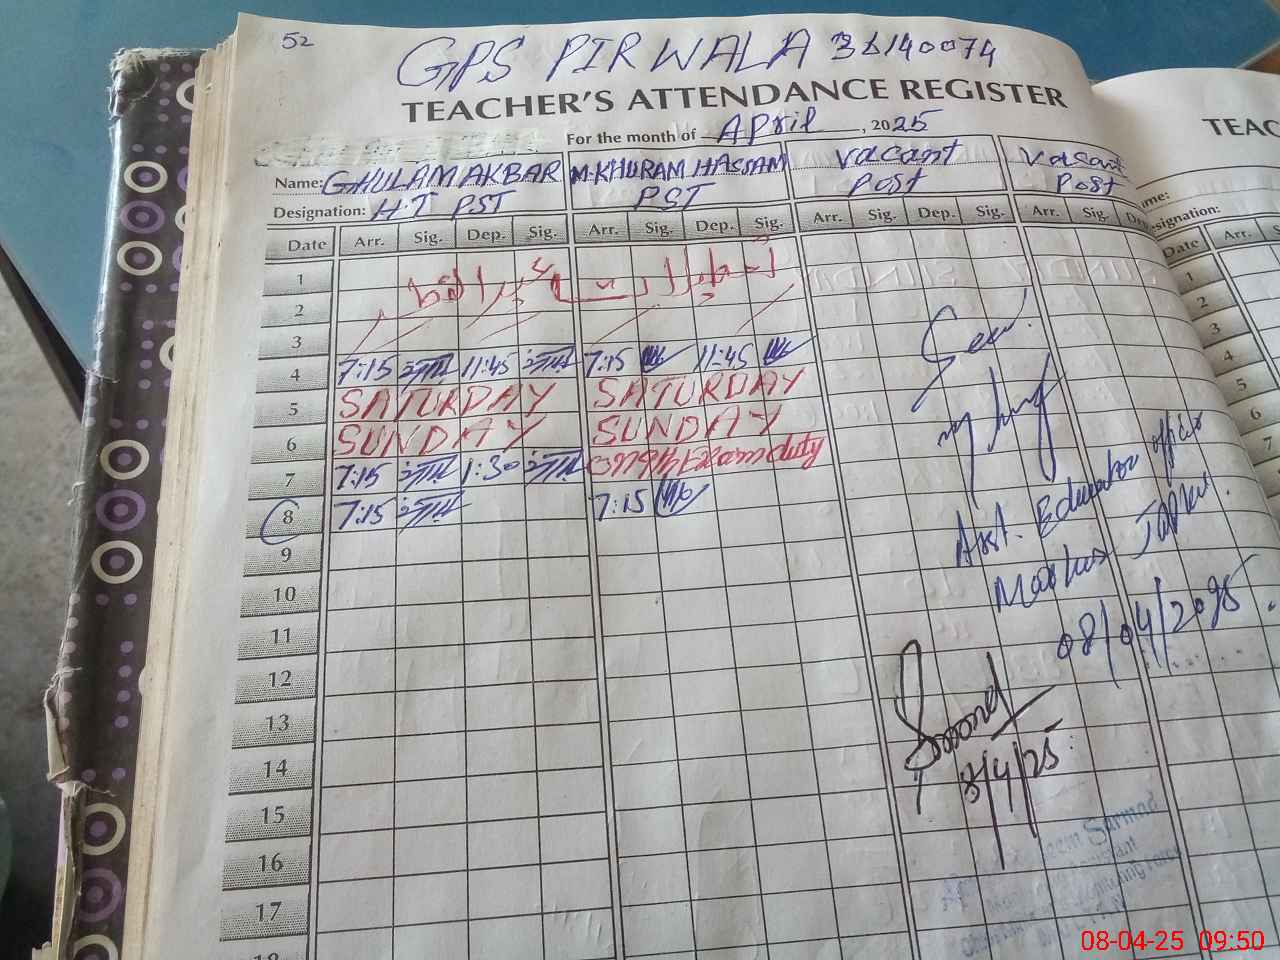 52
GPS PIR WALA 36140074
TEACHER'S ATTENDANCE REGISTER
For the month of April, 2025
Name: GHULAM AKBAR M.KHURAM HASSAM vacant vacant
Designation: H.T PST PST Post Post
Date Arr. Sig. Dep. Sig. Arr. Sig. Dep. Sig. Arr. Sig. Dep. Sig. Arr. Sig. Dep.
1
2
3
4 7:15 11:45 7:15 11:45
5 SATURDAY SATURDAY
6 SUNDAY SUNDAY
7 7:15 1:30 Exam duty
8 7:15 7:15
9
10
11
12
13
14
15
16
17
18
Seen
Asst. Education officer
Markaz
08/04/2025
8/4/25
TEAC
me:
esignation:
Date Arr. S
1
2
3
4
5
6
7
08-04-25 09:50